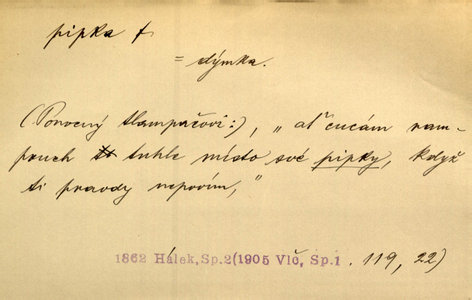 pipka f
= dýmka.
(Ponocný tlampačovi:), „ať cucám ram-
pouch tuhle místo své pipky, když
ti pravdy nepovím,"
1862 Hálek, Sp.2(1905 Vlč, Sp.1. 119, 22)